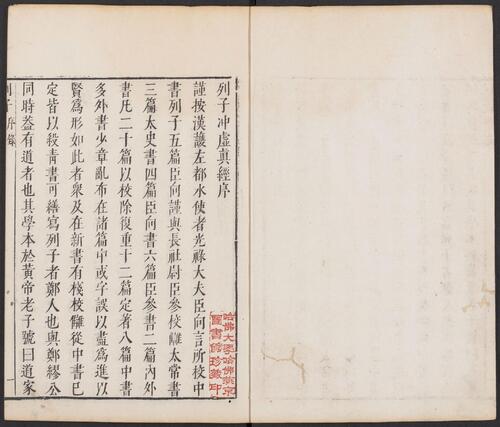 列子沖虛真經序
謹按漢護左都水使者光祿大夫臣向言所校中
書列子五篇臣向謹與長社尉臣參校讎太常書
三篇太史書四篇臣向書六篇臣參書二篇內外
書凡二十篇以校除復重十二篇定著八篇中書
多外書少章亂布在諸篇中或字誤以盡爲進以
賢爲形如此者衆及在新書有棧校讎從中書已
定皆以殺青書可繕寫列子者鄭人也與鄭繆公
同時葢有道者也其學本於黃帝老子號曰道家
列子 序
一
哈佛大學哈佛燕京
圖書館珍藏印